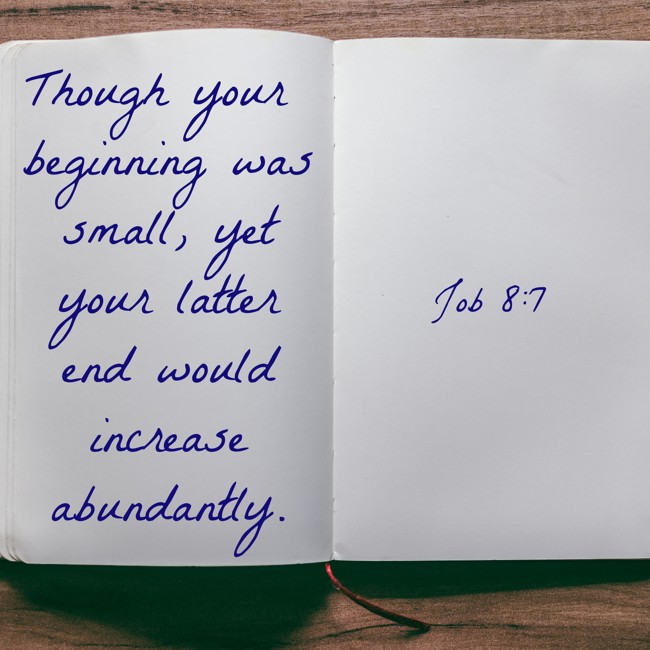 Though your
beginning was
small, yet
your latter
end would
increase
abundantly.
Job 8:7